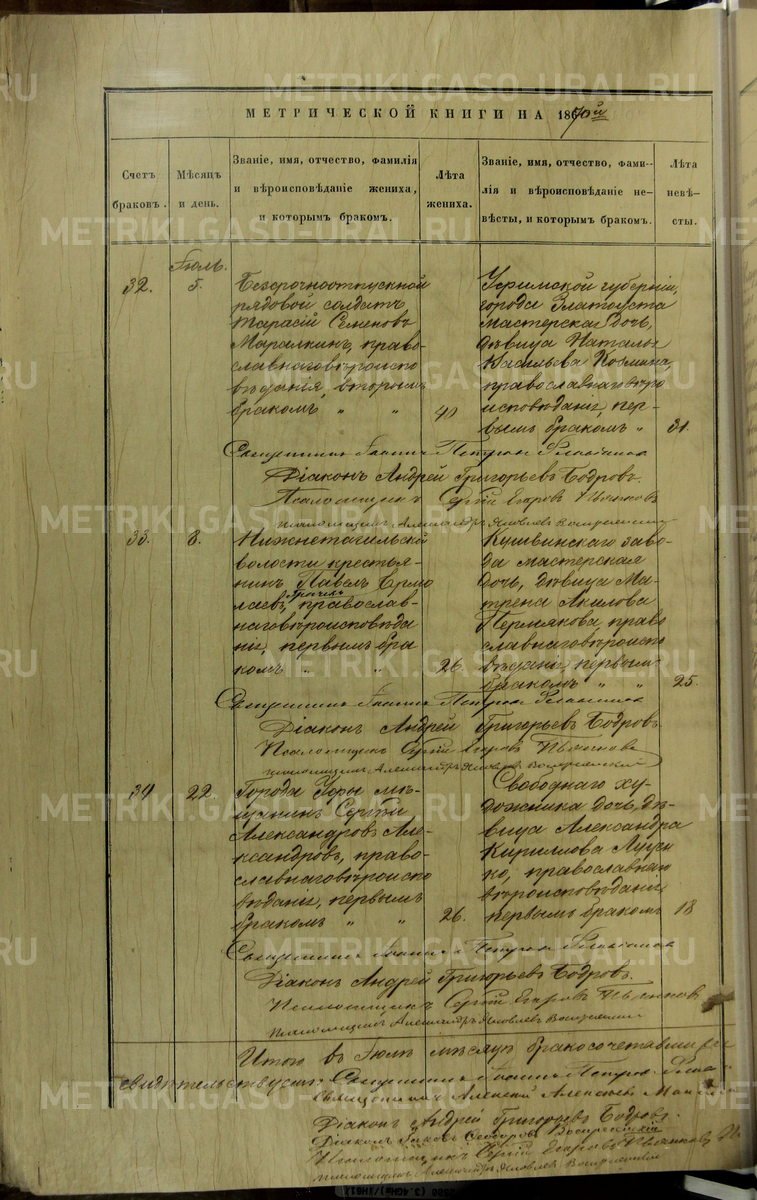 МЕТРИЧЕСКОЙ КНИГИ НА 1870й
Счетъ браковъ.
Мѣсяцъ и день.
Званіе, имя, отчество, фамилія
и вѣроисповѣданіе жениха,
и которымъ бракомъ.
Лѣта жениха.
Званіе, имя, отчество, фами-
лія и вѣроисповѣданіе не-
вѣсты, и которымъ бракомъ.
Лѣта невѣ-
сты.
Іюль.
32.
5.
Безсрочноотпускной
рядовой солдатъ
Тарасій Семеновъ
Маралкинъ, право-
славнаго вѣроиспо
вѣданія, вторымъ
бракомъ " "
40
Уфимской губерніи,
города Златоуста
мастерская дочь,
дѣвица Наталья
Васильева Козмина,
православнаго вѣро
исповѣданія, пер-
вымъ бракомъ "
31.
Священникъ Іоаннъ Петровъ
Діаконъ Андрей Григорьевъ Бодровъ.
Псаломщикъ Сергій Егоровъ Пьянковъ
псаломщикъ Александръ Яковлевъ Воскресенскій
33.
8.
Нижнетагильской
волости крестья-
нинъ Павелъ Ермо
лаевъ, православ-
наго вѣроисповѣда
нія, первымъ бра
комъ " "
26.
Кушвинскаго заво-
да мастерская
дочь, дѣвица Ма-
трена Акилова
Пермякова, право
славнаго вѣроиспо
вѣданія, первымъ
бракомъ " "
25.
Священникъ Іоаннъ Петровъ
Діаконъ Андрей Григорьевъ Бодровъ
Псаломщикъ Сергій Егоровъ Пьянковъ
псаломщикъ Александръ Яковлевъ Воскресенскій
34
22.
Города Уфы мѣ-
щанинъ Сергѣй
Александровъ Але-
ксандровъ, право-
славнаго вѣроиспо
вѣданія, первымъ
бракомъ " "
26.
Свободнаго ху-
дожника дочь, дѣ-
вица Александра
Кириллова Луцен
ко, православнаго
вѣроисповѣданія
первымъ бракомъ
18
Священникъ Іоаннъ Петровъ
Діаконъ Андрей Григорьевъ Бодровъ.
Псаломщикъ Сергій Егоровъ Пьянковъ
псаломщикъ Александръ Яковлевъ Воскресенскій
Итого въ Іюлѣ мѣсяцѣ бракосочетавшихся
свидѣтельствуемъ: Священникъ Іоаннъ Петровъ
Священникъ Алексій Алексѣевъ
Діаконъ Андрей Григорьевъ Бодровъ.
Діаконъ Іаковъ Сидоровъ Воскресенскій
Псаломщикъ Сергій Егоровъ Пьянковъ
псаломщикъ Александръ Яковлевъ Воскресенскій
METRIKI.GASO-URAL.RU